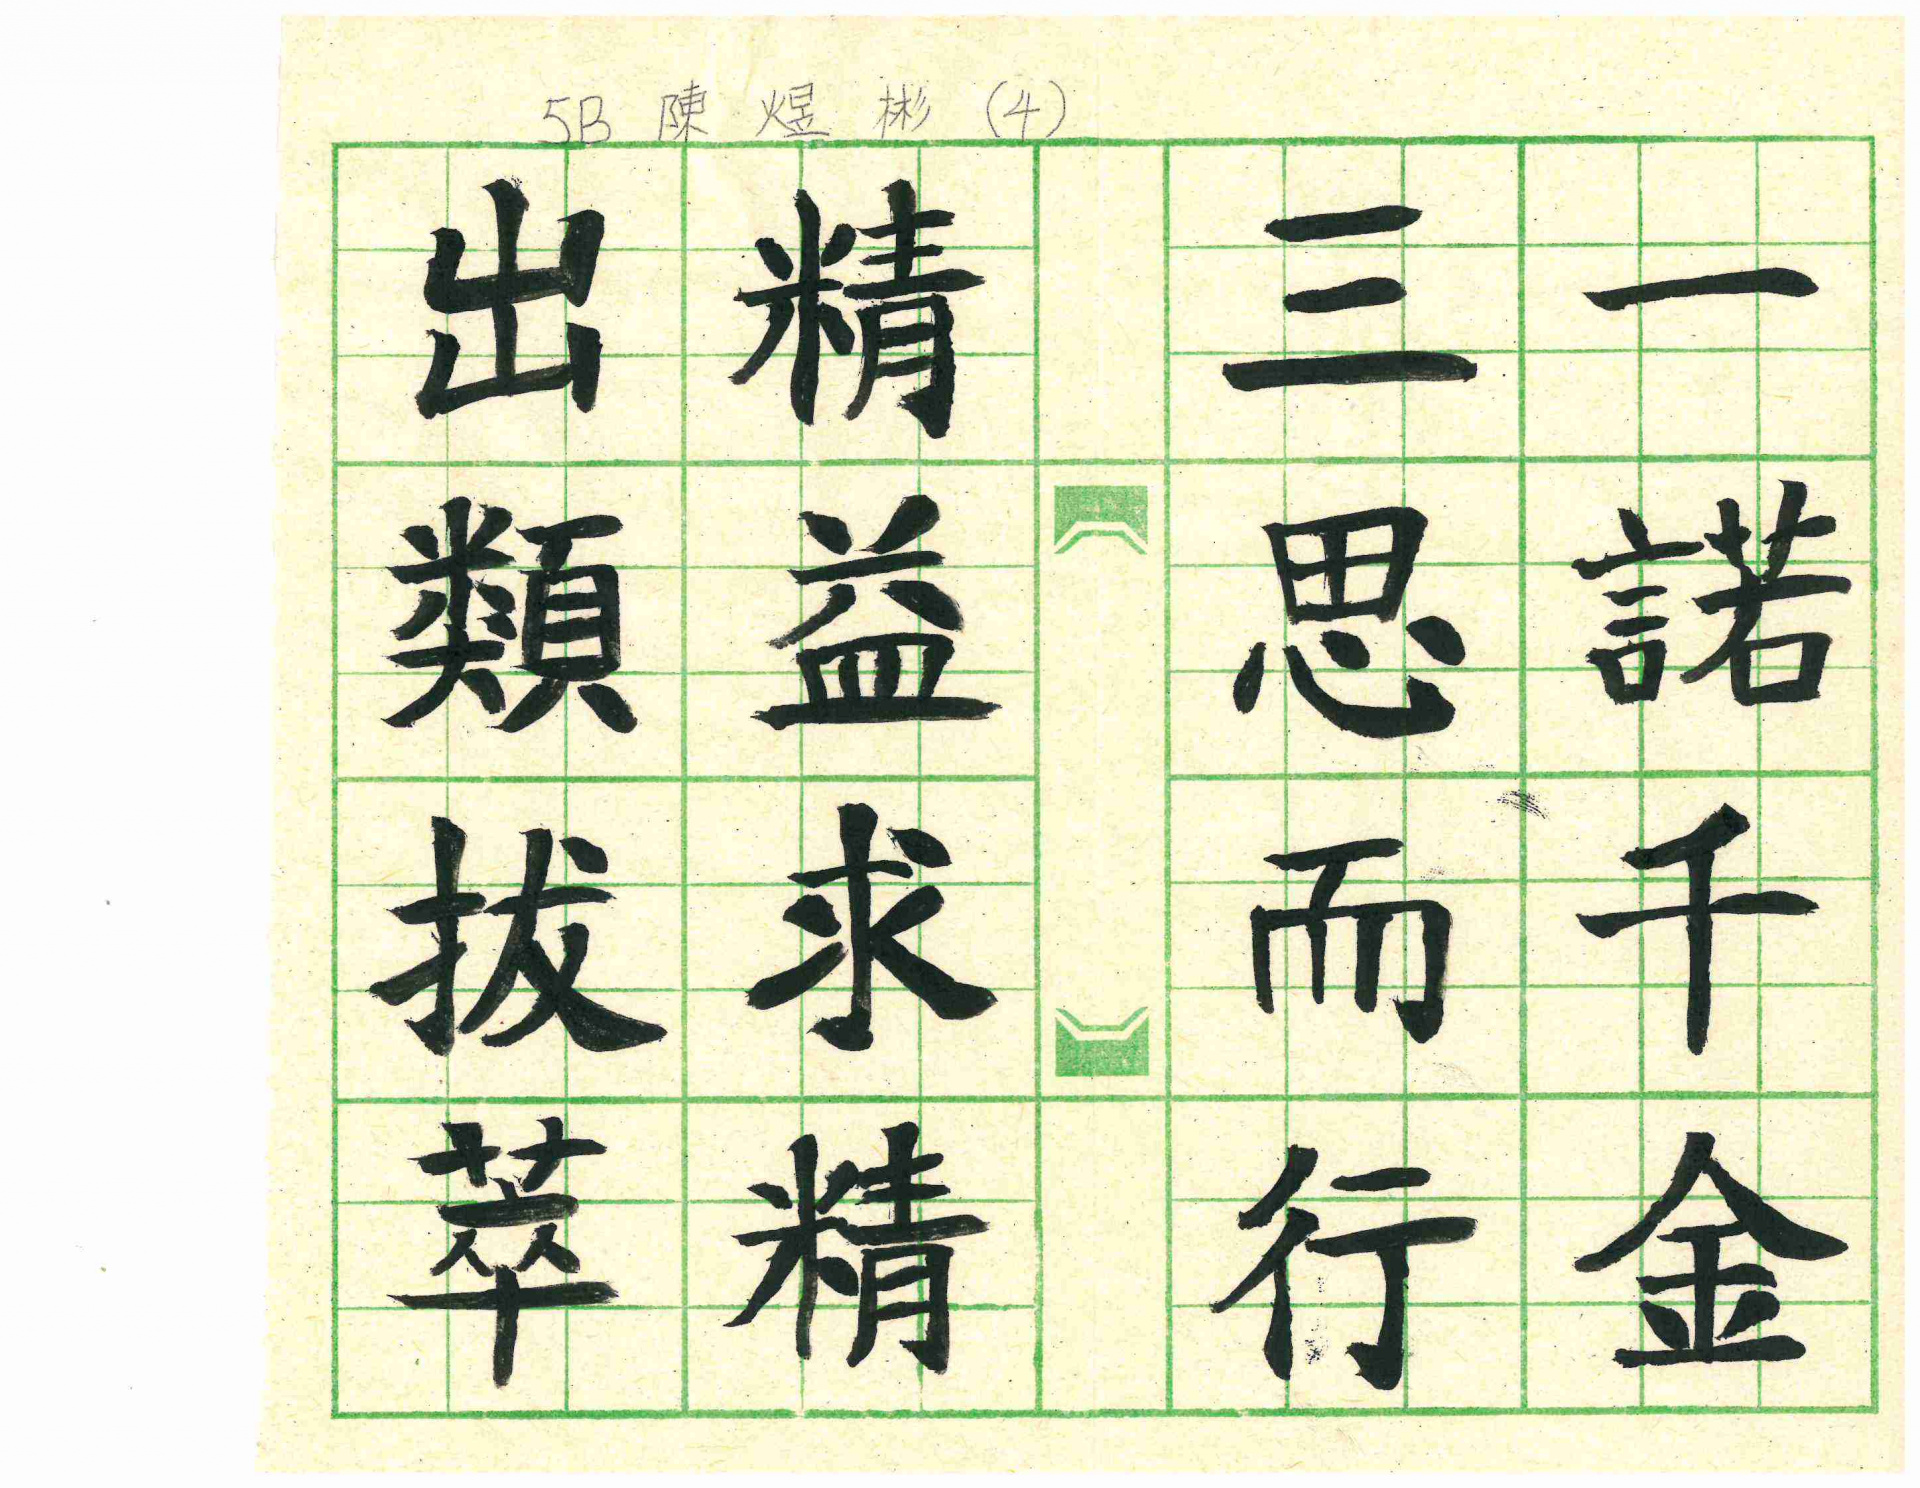 5B 陳煜彬(4)
一諾千金
三思而行
精益求精
出類拔萃